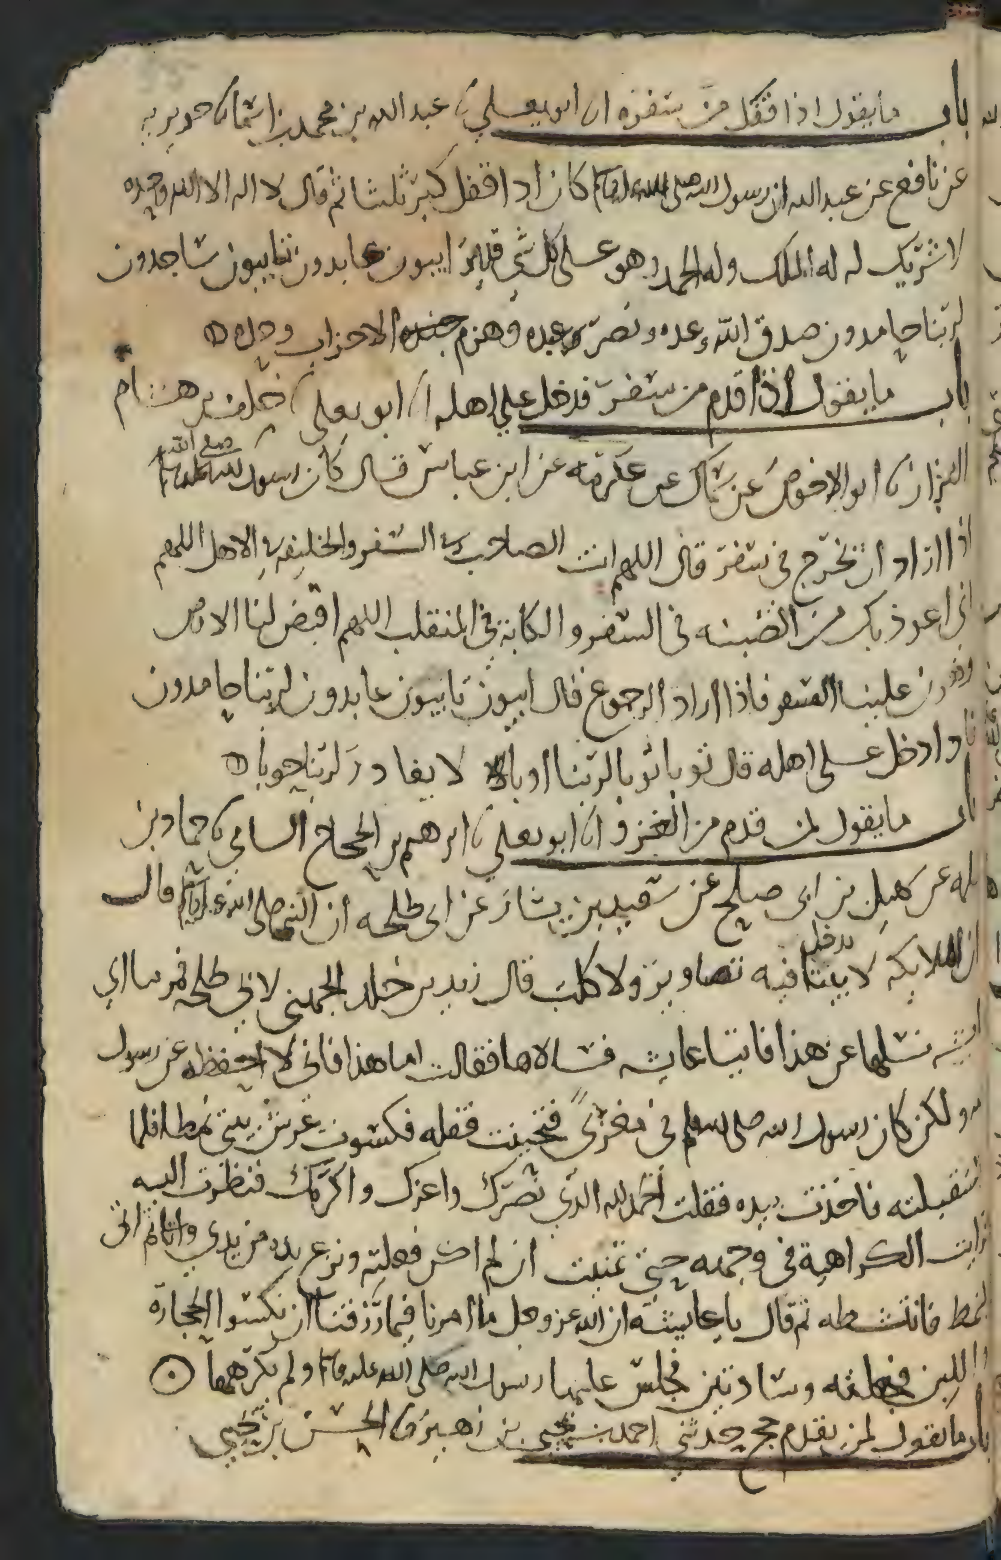 باب ما يقول اذا قفل من سفره انا ابو يعلى نا عبد الله بن محمد بن اسما نا جويريه
عن نافع عن عبد الله ان رسول الله صلى الله عليه كان اذا قفل كبر ثلثا ثم قال لا اله الا الله وحده
لا شريك له له الملك وله الحمد وهو على كل شي قدير ايبون عابدون تايبون ساجدون
لربنا حامدون صدق الله وعده ونصر عبده وهزم الاحزاب وحده
باب ما يقول اذا قدم من سفر فدخل على اهله انا ابو يعلى نا خلف بن هشام
البزار نا ابو الاحوص عن سماك عن عكرمه عن ابن عباس قال كان رسول الله صلى الله
اذا اراد ان يخرج في سفر قال اللهم انت الصاحب في السفر والخليفه في الاهل اللهم
اني اعوذ بك من الضبنه في السفر والكابه في المنقلب اللهم اقبض لنا الارض
وهون علينا السفر فاذا اراد الرجوع قال ايبون تايبون عابدون لربنا حامدون
فاذا دخل على اهله قال توبا توبا لربنا اوبا لا يغادر حوبا
باب ما يقول لمن قدم من الغزو انا ابو يعلى نا ابرهيم بن الحجاج السامي نا حماد بن
سلمه عن سهيل بن ابي صلح عن سعيد بن يسار عن ابي طلحه ان النبي صلى الله عليه قال
ان الملايكه لا تدخل بيتا فيه تصاوير ولا كلب قال زيد بن خلد الجهني لابي طلحه قم بنا الى
عايشه نسلها عن هذا فاتينا عايشه فسالاها فقالت اما هذا فاني لا احفظه عن رسول
الله ولكن كان رسول الله صلى الله في مغزى فتحينت قفله فكسوت عرش بيتي نمطا فلما
استقبلته فاخذت بيده فقلت الحمد لله الذي نصرك واعزك واكرمك فنظرت اليه
فرايت الكراهية في وجهه حتى تمنيت ان لم اكن فعلته ونزع يده من يدي واتى
النمط فانتشطه ثم قال يا عايشه ان الله عز وجل ما امرنا فيما رزقنا ان نكسوا الحجارة
واللبن فجعلته وسادتين فجلس عليهما رسول الله صلى الله عليه ولم يكرههما
باب ما يقول لمن يقدم حج حدثني احمد بن يحيى بن زهير نا الحسن بن يحيى